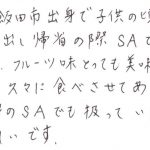 飯田市出身で子供の頃
出し帰省の際SAで
、フルーツ味とっても美味
久々に食べさせてあ
のSAでも扱ってい
いです。